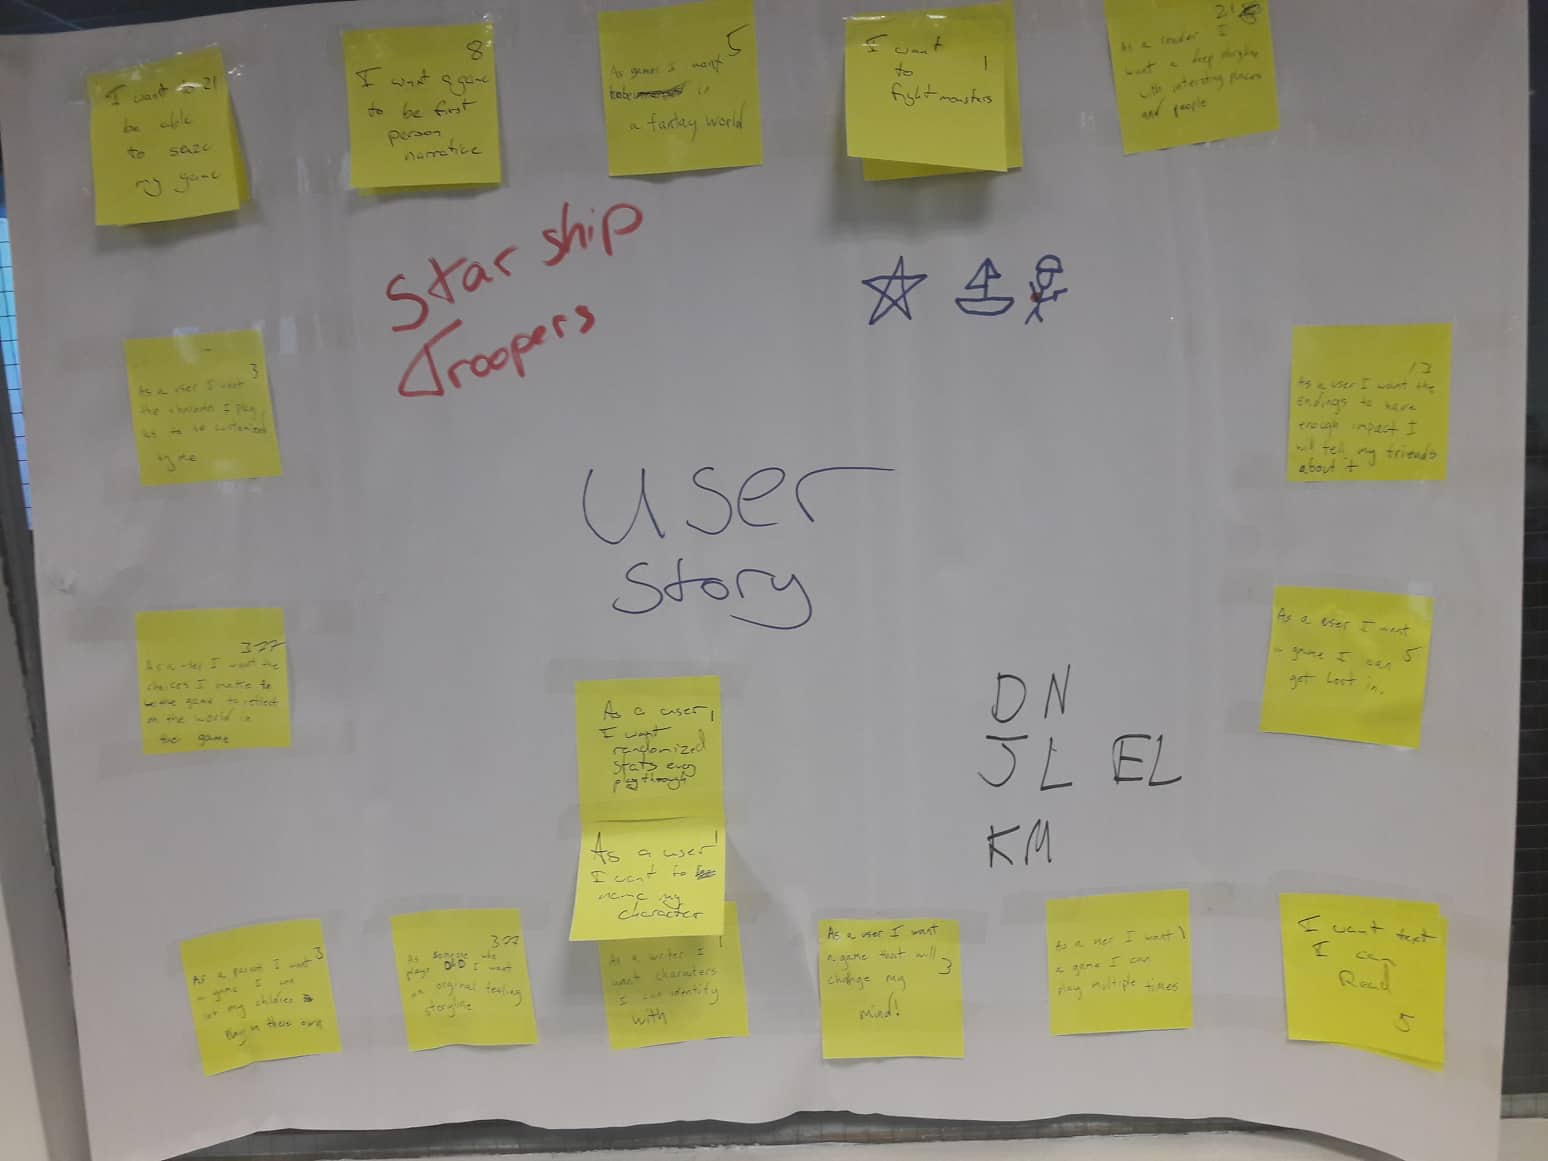 I want to 21
be able
to save
my game
8
I want a game
to be first
person
narrative
5
As gamer I want
in
a fantay world
I want
to 1
fight monsters
21
As a reader I
want a deep
with intersting places
and people
Star ship
Troopers
3
As a user I want
the I play
as to be customized
by me
13
As a user I want the
endings to have
enough impact I
will tell my friends
about it
User
Story
377
As a user I want the
choices I make to
game to reflect
on the world in
the game
As a user I want
a game I can 5
get lost in.
As a user 1
I want
randomized
stats every
playthrough
DN
JL EL
KM
As a user 1
I want to
name my
character
As a parent I want 3
a game I can
let my children
play on there own
377
As someone who
plays DND I want
an orginal feeling
storyline
1
As a writer I
want characters
I can identify
with
As a user I want
a game that will 3
change my
mind!
As a user I want 1
a game I can
play multiple times
I want text
I can
Read
5